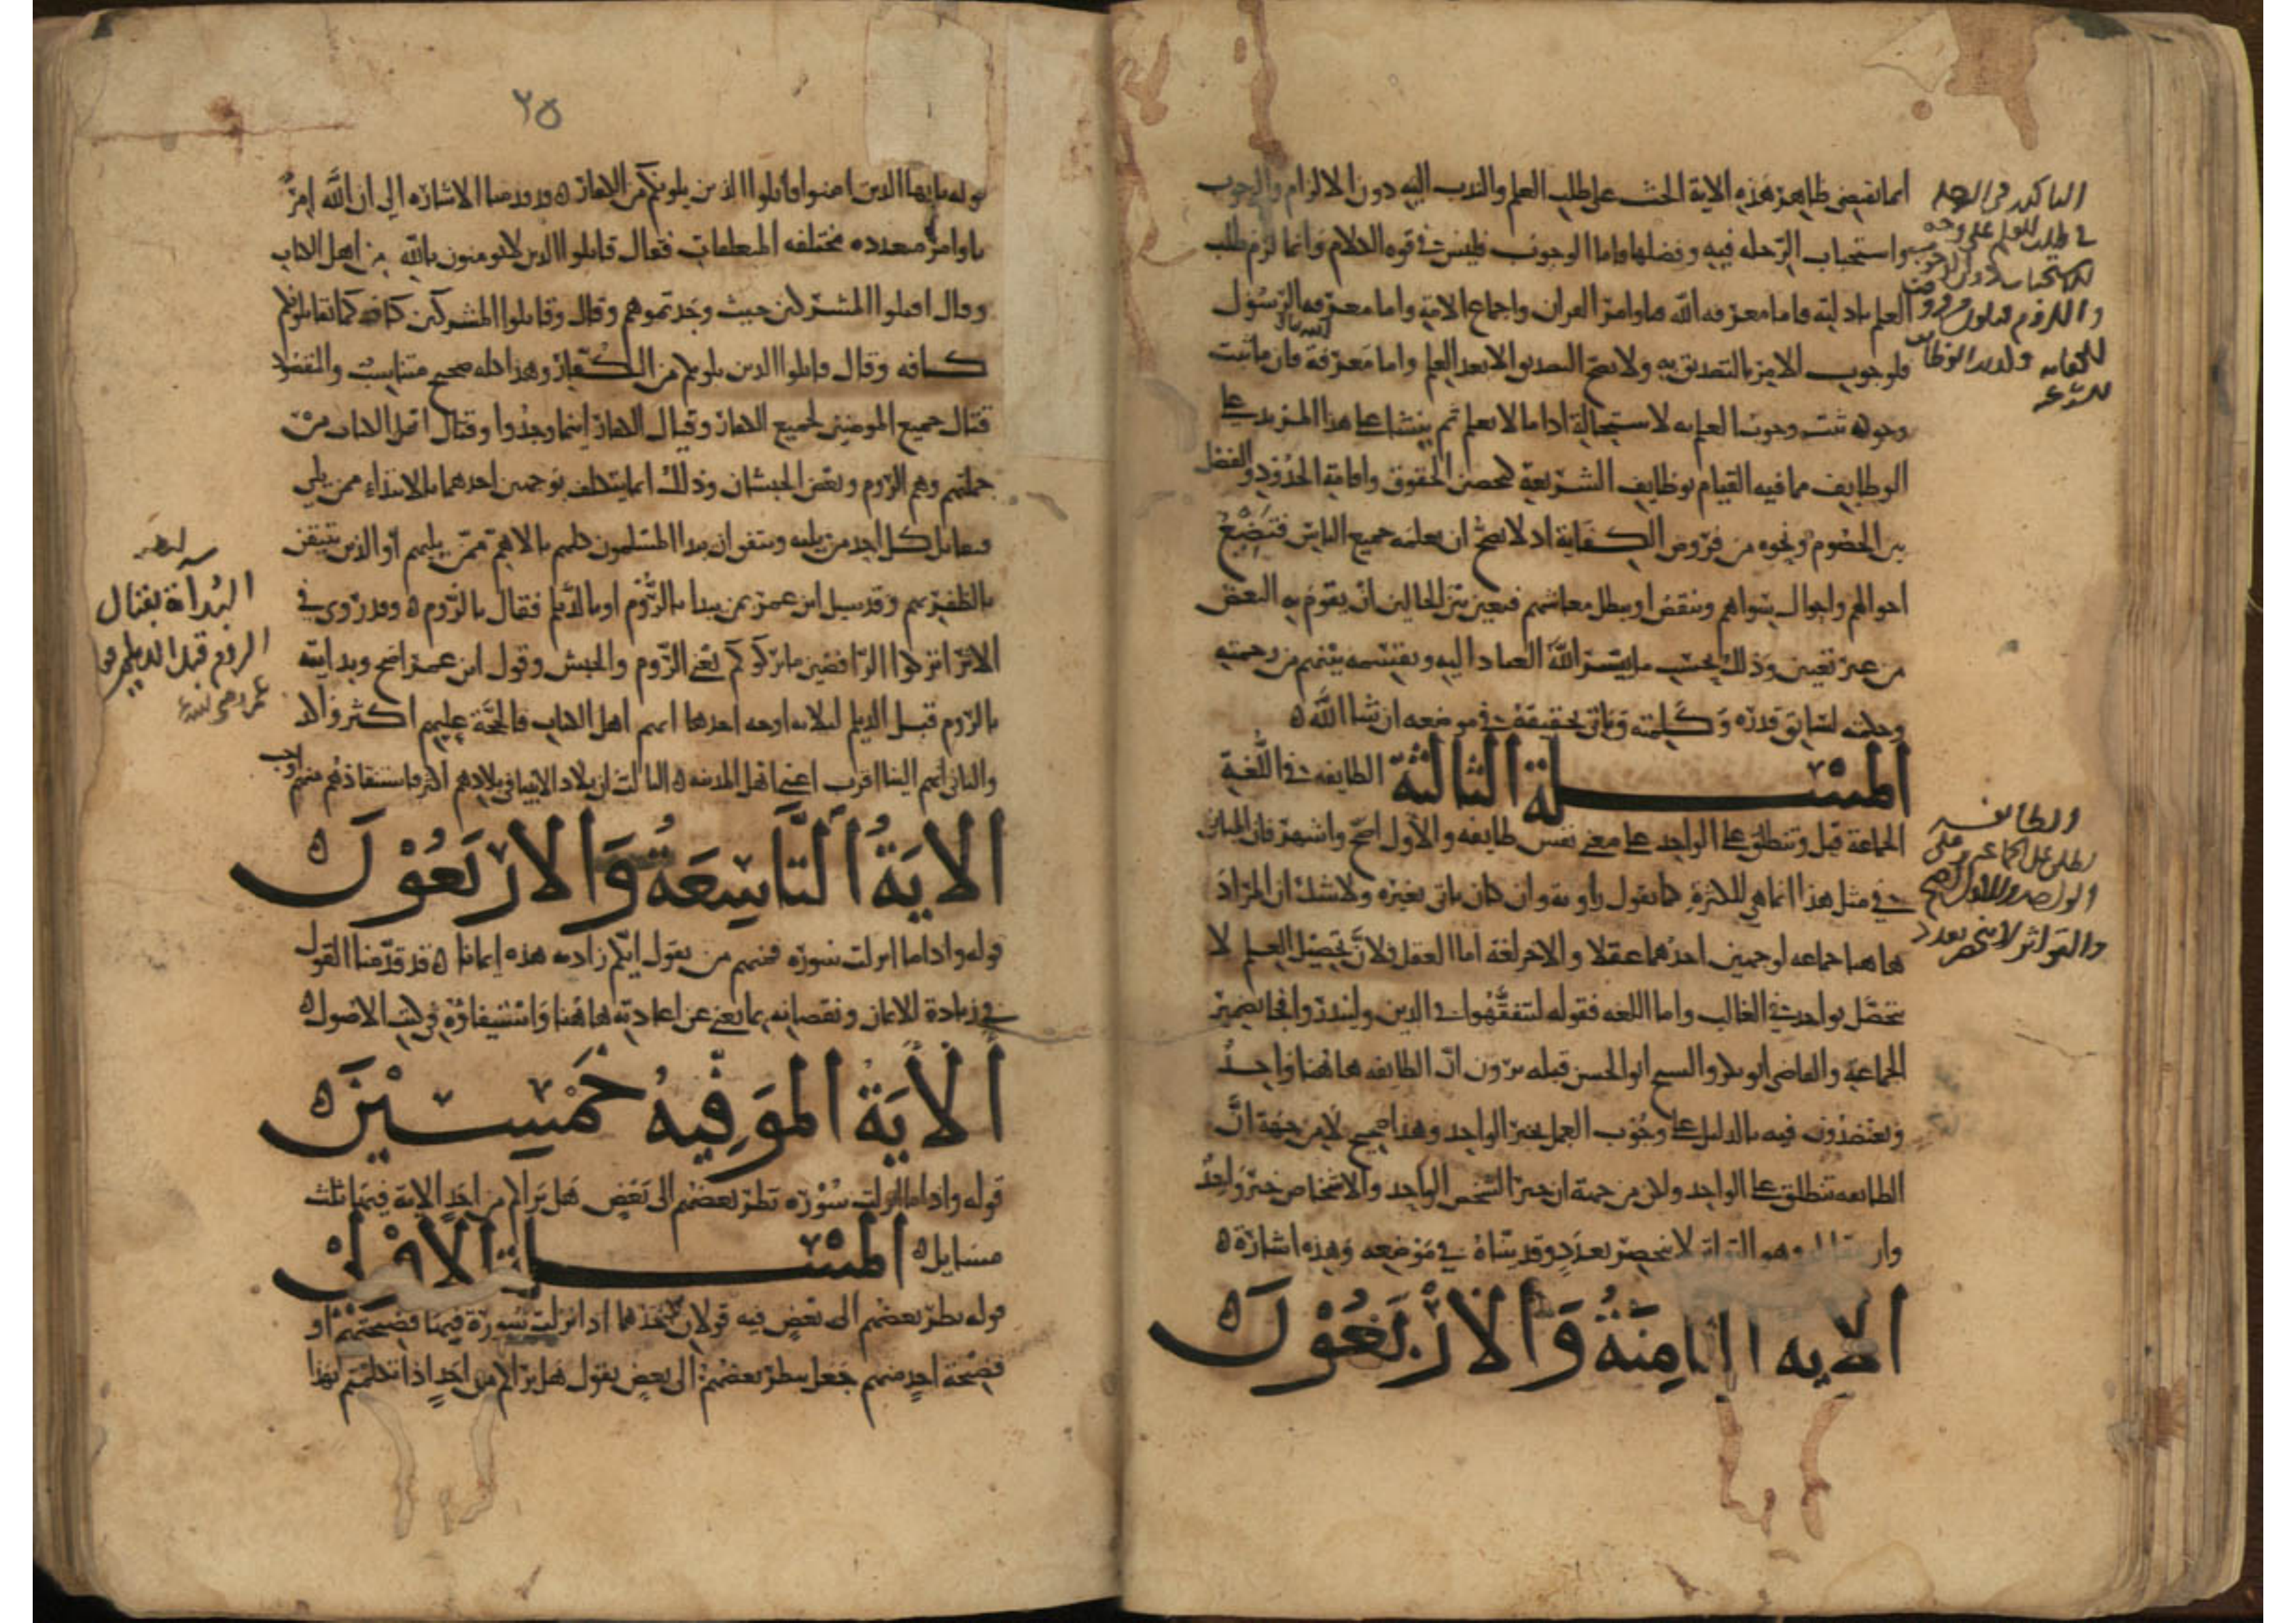 انما يقتضي ظاهر هذه الاية الحث على طلب العلم والندب اليه دون الالزام والوجوب
واستحباب الرحلة فيه وفضلها فاما الوجوب فليس في قوة الكلام وانما لزم طلب
العلم بادلته فاما معرفة الله فباوامر القران واجماع الامة واما معرفة الرسول
فلوجوب الامر بالتصديق به ولا يصح التصديق الا بعد العلم واما معرفة فان ما ثبت
وجوبه ثبت وجوب العلم به لاستحالة اداء ما لا يعلم ثم ينشا على هذا المزيد على
الوظايف مما فيه القيام بوظايف الشريعة كتحصين الحقوق واقامة الحدود والفصل
بين الخصوم ونحوه من فروض الكفاية اذ لا يصح ان يعلمه جميع الناس فتضيع
احوالهم واحوال سواهم وينقص او يبطل معاشهم فتعين بين الحالين ان يقوم به البعض
من غير تعيين وذلك بحسب ما ييسر الله العباد اليه ويقسمه بينهم من رحمته
وحكمته لسابق قدرته وكلمته وياتي تحقيقه في موضعه ان شا الله
المسلة الثالثة الطايفة في اللغة
الجماعة قيل وتنطلق على الواحد على معنى نفس طايفة والاول اصح واشهر فان الهاء
في مثل هذا انما هي للكثرة كما يقول راوية وان كان ياتي بغيره ولا شك ان المراد
هاهنا جماعة لوجهين احدهما عقلا والاخر لغة اما العقل فلان تحصيل العلم لا
يتحصل بواحد في الغالب واما اللغة فقوله ليتفقهوا في الدين ولينذروا فجا بضمير
الجماعة والقاضي ابو بكر والشيخ ابو الحسن قبله يرون ان الطايفة هاهنا واحد
ويعتضدون فيه بالدليل على وجوب العمل بخبر الواحد وهذا صحيح لا من جهة ان
الطايفة تنطلق على الواحد ولكن من جهة ان خبر الشخص الواحد والاشخاص خبر واحد
وان مقابله وهو التواتر لا ينحصر بعدد وقد بيناه في موضعه وهذه اشارة
الاية الثامنة والاربعون
والطائفة
تطلق على الجماعة وعلى
الواحد والاول اصح
والتواتر لا ينحصر بعدد
٢٥
قوله يايها الذين امنوا قاتلوا الذين يلونكم من الكفار قد قدمنا الاشارة الى ان الله امر
باوامر متعددة مختلفة المتعلقات فقال قاتلوا الذين لا يومنون بالله من اهل الكتاب
وقال اقتلوا المشركين حيث وجدتموهم وقال وقاتلوا المشركين كافة كما يقاتلونكم
كافة وقال قاتلوا الذين يلونكم من الكفار وهذا كله صحيح متناسب والمقصود
قتال جميع المومنين لجميع الكفار وقتال الكفار اينما وجدوا وقتال اهل الكتاب من
جملتهم وهم الروم وبعض الحبشان وذلك انما يتكلف بوجهين احدهما بالابتداء ممن يلي
فيقاتل كل احد من يليه ويتفق ان يبدا المسلمون كلهم بالاهم ممن يليهم او الذين يتيقن
بالظفر بهم وقد سيل ابن عمر بمن يبدا بالروم او بالديلم فقال بالروم وقد روي في
الاثر اتركوا الرابضين ما تركوكم يعني الروم والحبش وقول ابن عمر اصح وبدايته
بالروم قبل الديلم لثلاثة اوجه احدها انهم اهل الكتاب فالحجة عليهم اكثر واكد
والثاني انهم الينا اقرب اعني اهل المدينة الثالث ان بلاد الانبيا في بلادهم اكثر فاستنقاذها منهم اوجب
الاية التاسعة والاربعون
قوله واذا ما انزلت سورة فمنهم من يقول ايكم زادته هذه ايمانا قد قدمنا القول
في زيادة الايمان ونقصانه بما يغني عن اعادته هاهنا واستيفاؤه في كتب الاصول
الاية الموفيه خمسين
قوله واذا ما انزلت سورة نظر بعضهم الى بعض هل يراكم من احد الاية فيها ثلث
مسايل المسلة الاولى
قوله نظر بعضهم الى بعض فيه قولان احدهما اذا انزلت سورة فيها فضيحتهم او
فضيحة احد منهم جعل ينظر بعضهم الى بعض يقول هل يراكم من احد اذا تكلمتم بهذا
البدأة بقتال
الروم قبل الديلم